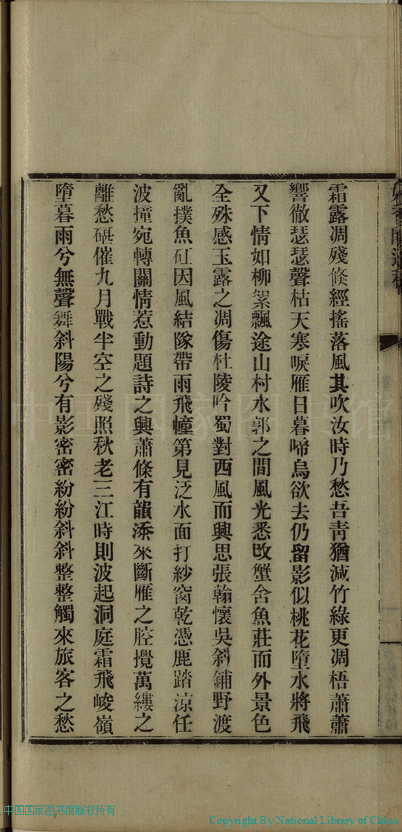 霜露凋殘倏經搖落風其吹汝時乃愁吾靑猶減竹綠更凋梧蕭蕭
響徹瑟瑟聲枯天寒唳雁日暮啼烏欲去仍留影似桃花墮水將飛
又下情如柳絮飄途山村水郭之間風光悉改蟹舍魚莊而外景色
全殊感玉露之凋傷杜陵吟蜀對西風而興思張翰懷吳斜鋪野渡
亂撲魚矼因風結隊帶雨飛幢第見泛水面打紗窗乾憑鹿踏凉任
波撞宛轉關情惹動題詩之興蕭條有韻添來斷雁之腔攪萬縷之
離愁砧催九月戰半空之殘照秋老三江時則波起洞庭霜飛峻嶺
墮暮雨兮無聲舞斜陽兮有影密密紛紛斜斜整整觸來旅客之愁
中国国家图书馆版权所有
Copyright By National Library of China